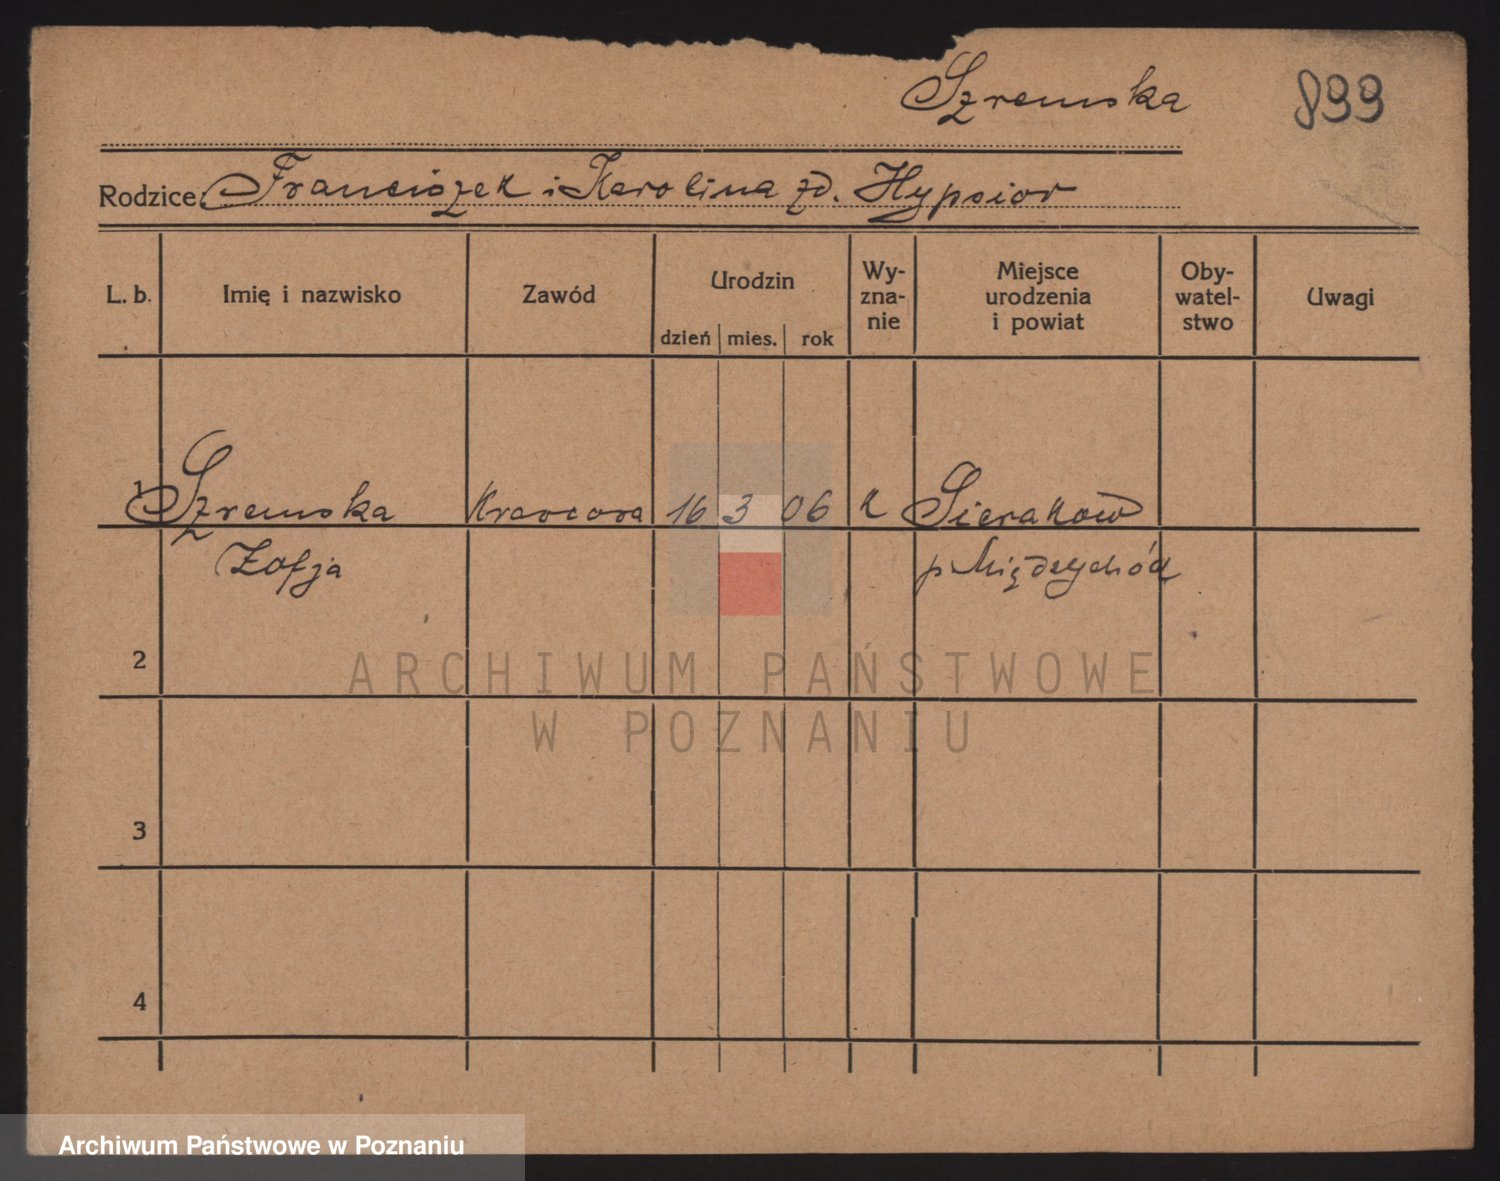 Szremska
899
Rodzice Franciszek i Karolina zd. Hypsior
L. b.
Imię i nazwisko
Zawód
Urodzin
dzień mies. rok
Wy-
zna-
nie
Miejsce
urodzenia
i powiat
Oby-
watel-
stwo
Uwagi
1 Szremska Krawcowa 16 3 06 K Sieraków
Zofja p Międzychód
2
3
4
ARCHIWUM PAŃSTWOWE
W POZNANIU
Archiwum Państwowe w Poznaniu